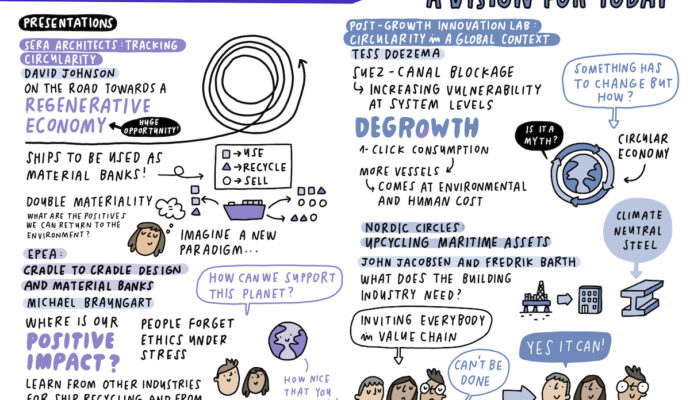 A VISION FOR TODAY
PRESENTATIONS
SERA ARCHITECTS: TRACKING
CIRCULARITY
DAVID JOHNSON
ON THE ROAD TOWARDS A
REGENERATIVE
ECONOMY
HUGE
OPPORTUNITY!
SHIPS TO BE USED AS
MATERIAL BANKS!
→ USE
→ RECYCLE
→ SELL
DOUBLE MATERIALITY
WHAT ARE THE POSITIVES
WE CAN RETURN TO THE
ENVIRONMENT?
IMAGINE A NEW
PARADIGM...
EPEA:
CRADLE TO CRADLE DESIGN
AND MATERIAL BANKS
MICHAEL BRAUNGART
HOW CAN WE SUPPORT
THIS PLANET?
WHERE IS OUR
POSITIVE
IMPACT?
PEOPLE FORGET
ETHICS UNDER
STRESS
HOW NICE
THAT YOU
LEARN FROM OTHER INDUSTRIES
FOR SHIP RECYCLING AND FROM
POST-GROWTH INNOVATION LAB:
CIRCULARITY in A GLOBAL CONTEXT
TESS DOEZEMA
SUEZ-CANAL BLOCKAGE
↳ INCREASING VULNERABILITY
AT SYSTEM LEVELS
DEGROWTH
1-CLICK CONSUMPTION
MORE VESSELS
↳ COMES AT ENVIRONMENTAL
AND HUMAN COST
SOMETHING HAS
TO CHANGE BUT
HOW?
IS IT A
MYTH?
CIRCULAR
ECONOMY
NORDIC CIRCLES:
UPCYCLING MARITIME ASSETS
JOHN JACOBSEN AND FREDRIK BARTH
WHAT DOES THE BUILDING
INDUSTRY NEED?
CLIMATE
NEUTRAL
STEEL
INVITING EVERYBODY
in VALUE CHAIN
CAN'T BE
DONE
YES IT CAN!